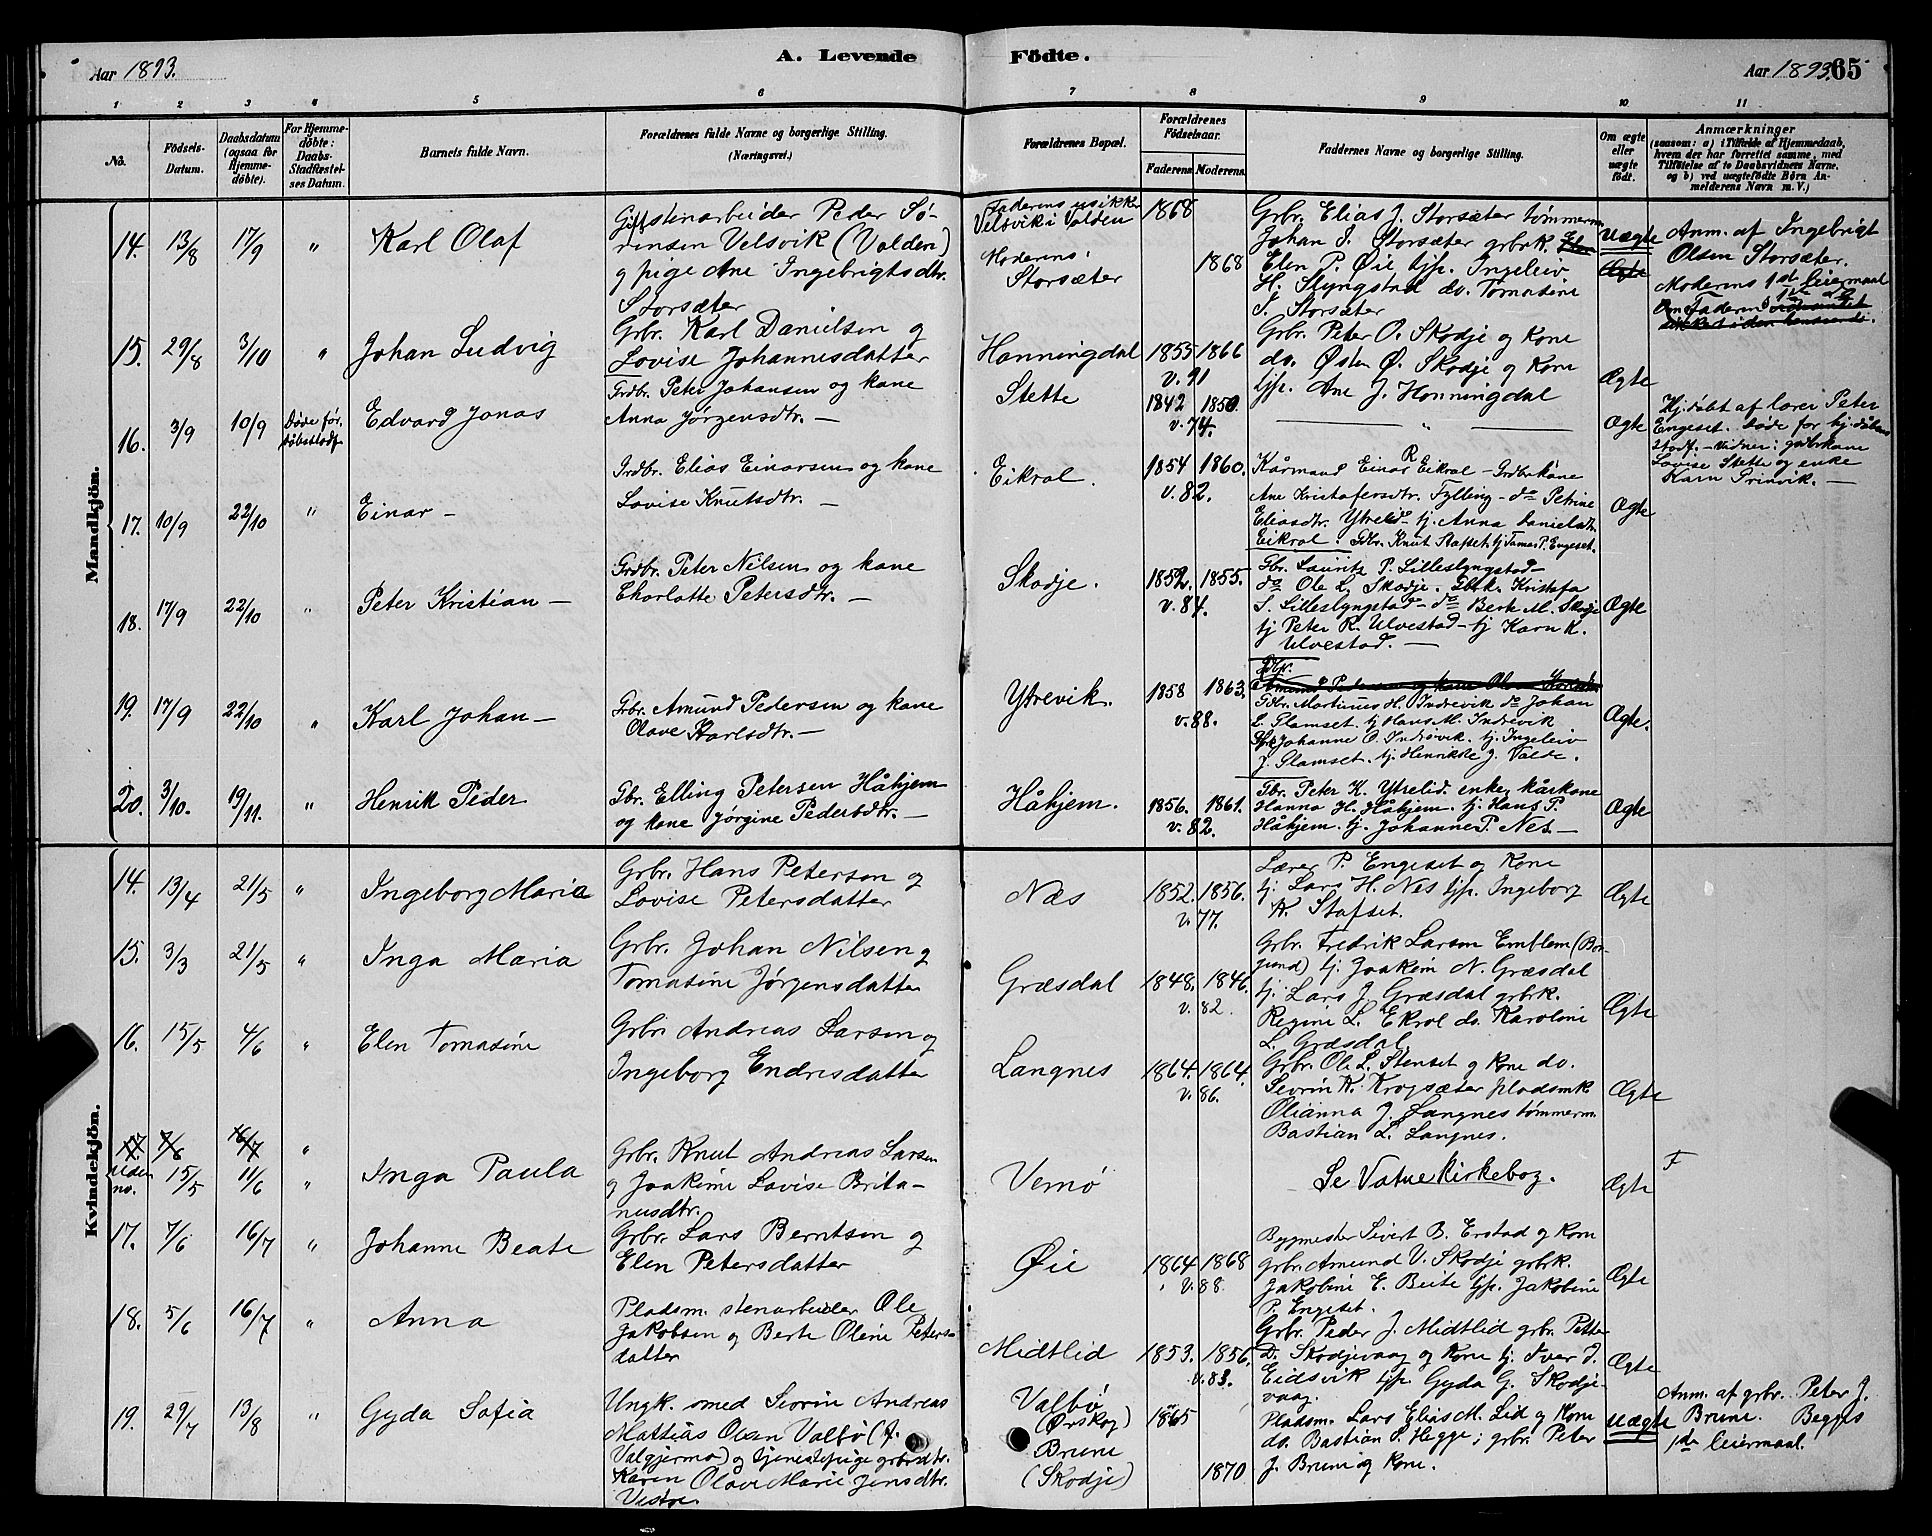 Aar 1893.
A. Levende
Födte.
Aar 1893.
65
1 2 3 4 5 6 7 8 9 10 11
No.
Födsels-Datum.
Daabsdatum (ogsaa for Hjemme-döbte).
For Hjemme-döbte: Daabs-Stadfæstel-ses Datum.
Barnets fulde Navn.
Forældrenes fulde Navne og borgerlige Stilling. (Næringsvei.)
Forældrenes Bopæl.
Forældrenes Födselsaar.
Faderens Moderens
Faddernes Navne og borgerlige Stilling.
Om ægte eller uægte födt.
Anmærkninger
(saasom: a) i Tilfælde af Hjemmedaab,
hvem der har forrettet samme, med
Tilföielse af to Daabsvidners Navne.
og b) ved uægtefödte Börn An-
melderens Navn m. V.)
Mandkjön.
14. 13/8 17/9 " Karl Olaf
stenarbeider Peder Sø-
rensen Velsvik (Volden)
g pige Ane Ingebrigtsdtr.
Storsæter
Velsvik i Volden
Moderens:
Storsæter
1868
1868
Grbr. Elias J. Storsæter tømmerm
Johan I. Storsæter grbrk.
Elen P. Øie tjp. Ingeleiv
H. Slyngstad do. Tomasine
I. Storsæter
Uægte
Ægte
Anm. af Ingebrigt
Olsen Storsæter.
Moderens 1ste leiermaal
15. 29/8 3/10 " Johan Ludvig
Grbr. Karl Danielsen g
Lovise Johannesdatter
Honningdal
1855 1866
v. 91
Grbr. Peter O. Skodje og Kone
do. Østen Ø. Skodje og Kone
tjp. Ane J. Honningdal
Ægte
16. 3/9 10/9 Døde før døbestadf.
Edvard Jonas
Grdbr. Peter Johansen og kane
Anna Jørgensdtr. —
Stette
1842 1850.
v. 74.
— " —
Ægte
Hj. døbt af lærer Peter
Engeset. Døde før hj.dåbens
Stadf. — Vidner: gbrkane
Lovise Stette og enke
Karn Prinvik. —
17. 10/9 22/10 " Einar —
Grdbr. Elias Einarsen og kane
Lovise Knutsdtr. —
Eikrol.
1854 1860.
v. 82.
Kårmand Einar R Eikrol — Grdbrkåne
Ane Kristofersdtr. Fylling — do Petrine
Eliasdtr. Ytrelid — tj. Anna Danielsdtr
Eikrol. Gbr. Knut Stafset. tj Tomas P. Engeset.
Ægte
18. 17/9 22/10 " Peter Kristian —
Grdbr. Peter Nilsen og kane
Charlotte Petersdtr. —
Skodje.
1852. 1855.
v. 84.
Gbr. Lauritz P. Lilleslyngstad —
do Ole L. Skodje. Gbrk. Kristofa
I. Lilleslyngstad — do Berte M. Skodje
tj Peter R. Ulvestad — tj Karn K.
Ulvestad. —
Ægte
19. 17/9 22/10 " Karl Johan —
Grbr. Amund Pedersen og kane
Olave Karlsdtr. —
Ytrevik.
1858 1863.
v. 88.
Gdbr.
Amund Pedersen og kane Olave
Gdbr. Martinus H. Indrevik do Johan
L. Slamset. tj Hans M. Indrevik
Johanne O. Indrevik. tj. Ingeleiv
J. Slamset. tj. Henrikke J. Valde.
Ægte.
20. 3/10. 19/11. " Henrik Peder
Gbr. Elling Petersen Håhjem
og kane Jørgine Pedersdtr. —
Håhjem.
1856. 1861.
v. 82.
Gbr. Peter K. Ytrelid. enke kårkone
Hanna H. Håhjem. tj. Hans P.
Håhjem. tj. Johanne P. Nes —
Ægte
Kvindekjön.
14. 13/4 21/5 " Ingeborg Maria
Grbr. Hans Peterson g
Lovise Petersdatter
Næs
1852. 1856.
v. 77.
Lærer P. Engeset og Kone
tj. Lars H. Nes tjp. Ingeborg
K. Stafset.
Ægte
15. 3/3 21/5 " Inga Maria
Grbr. Johan Nilsen g
Tomasine Jørgensdatter
Græsdal
1848. 1846.
v. 82.
Grbr. Fredrik Larsen Emblem (Bor-
gund) tj. Joakim N. Græsdal
tj. Lars J. Græsdal grbrk.
Regine L. Ekrol do. Karoline
L. Græsdal
Ægte
16. 15/5 4/6 " Elen Tomasine
Grbr. Andreas Larsen g
Ingeborg Endresdatter
Langnes
1864. 1864.
v. 86.
Grbr. Ole L. Stenset g Kone do.
Sevrin K. Krogsæter pladsmk.
Olianna J. Langnes tømmerm.
Bastian L. Langnes.
Ægte
17. 7/6 16/7 "
Uden no. 15/5 11/6 " Inga Paula
Grbr. Knut Andreas Larsen
g Joakime Lovise Brita-
nusdtr.
Vemø
Se Vatne Kirkebog.
Ægte
F
17. 7/6 16/7 " Johanne Beate
Grbr. Lars Berntsen g
Elen Petersdatter
Øie
1864 1868
v. 88
Bygmester Sivert B. Erstad og Kone
grbr. Amund V. Skodje grbrk.
Jakobine E. Beite tjp. Jakobine
P. Engeset.
Ægte
18. 5/6 16/7 " Anna
Pladsm. stenarbeider Ole
Jakobsen g Berte Oline Peters-
datter
Midtlid
1853. 1856.
v. 83.
Grbr. Peder J. Midtlid grbr. Petter
D. Skodjevaag og Kone tj. Iver I.
Eidsvik tjp. Gyda G. Skodje-
vaag.
Ægte
19. 29/7 13/8 " Gyda Sofia
Ungk. smed Sevrin Andreas
Mattias Olsen Valbø (f.
Valgjermo) g tjenestepige grbrdtr.
Karen Olave Marie Jensdtr.
Vestre
Valbø
(Ørskog)
Brune
(Skodje)
1865
1870
Pladsm. Lars Elias M. Lid og Kone
do. Bastian S. Hegge; grbr. Peter
J. Brune og Kone.
Uægte
Anm. af grbr. Peter J.
Brune. Begges
1ste leiermaal.